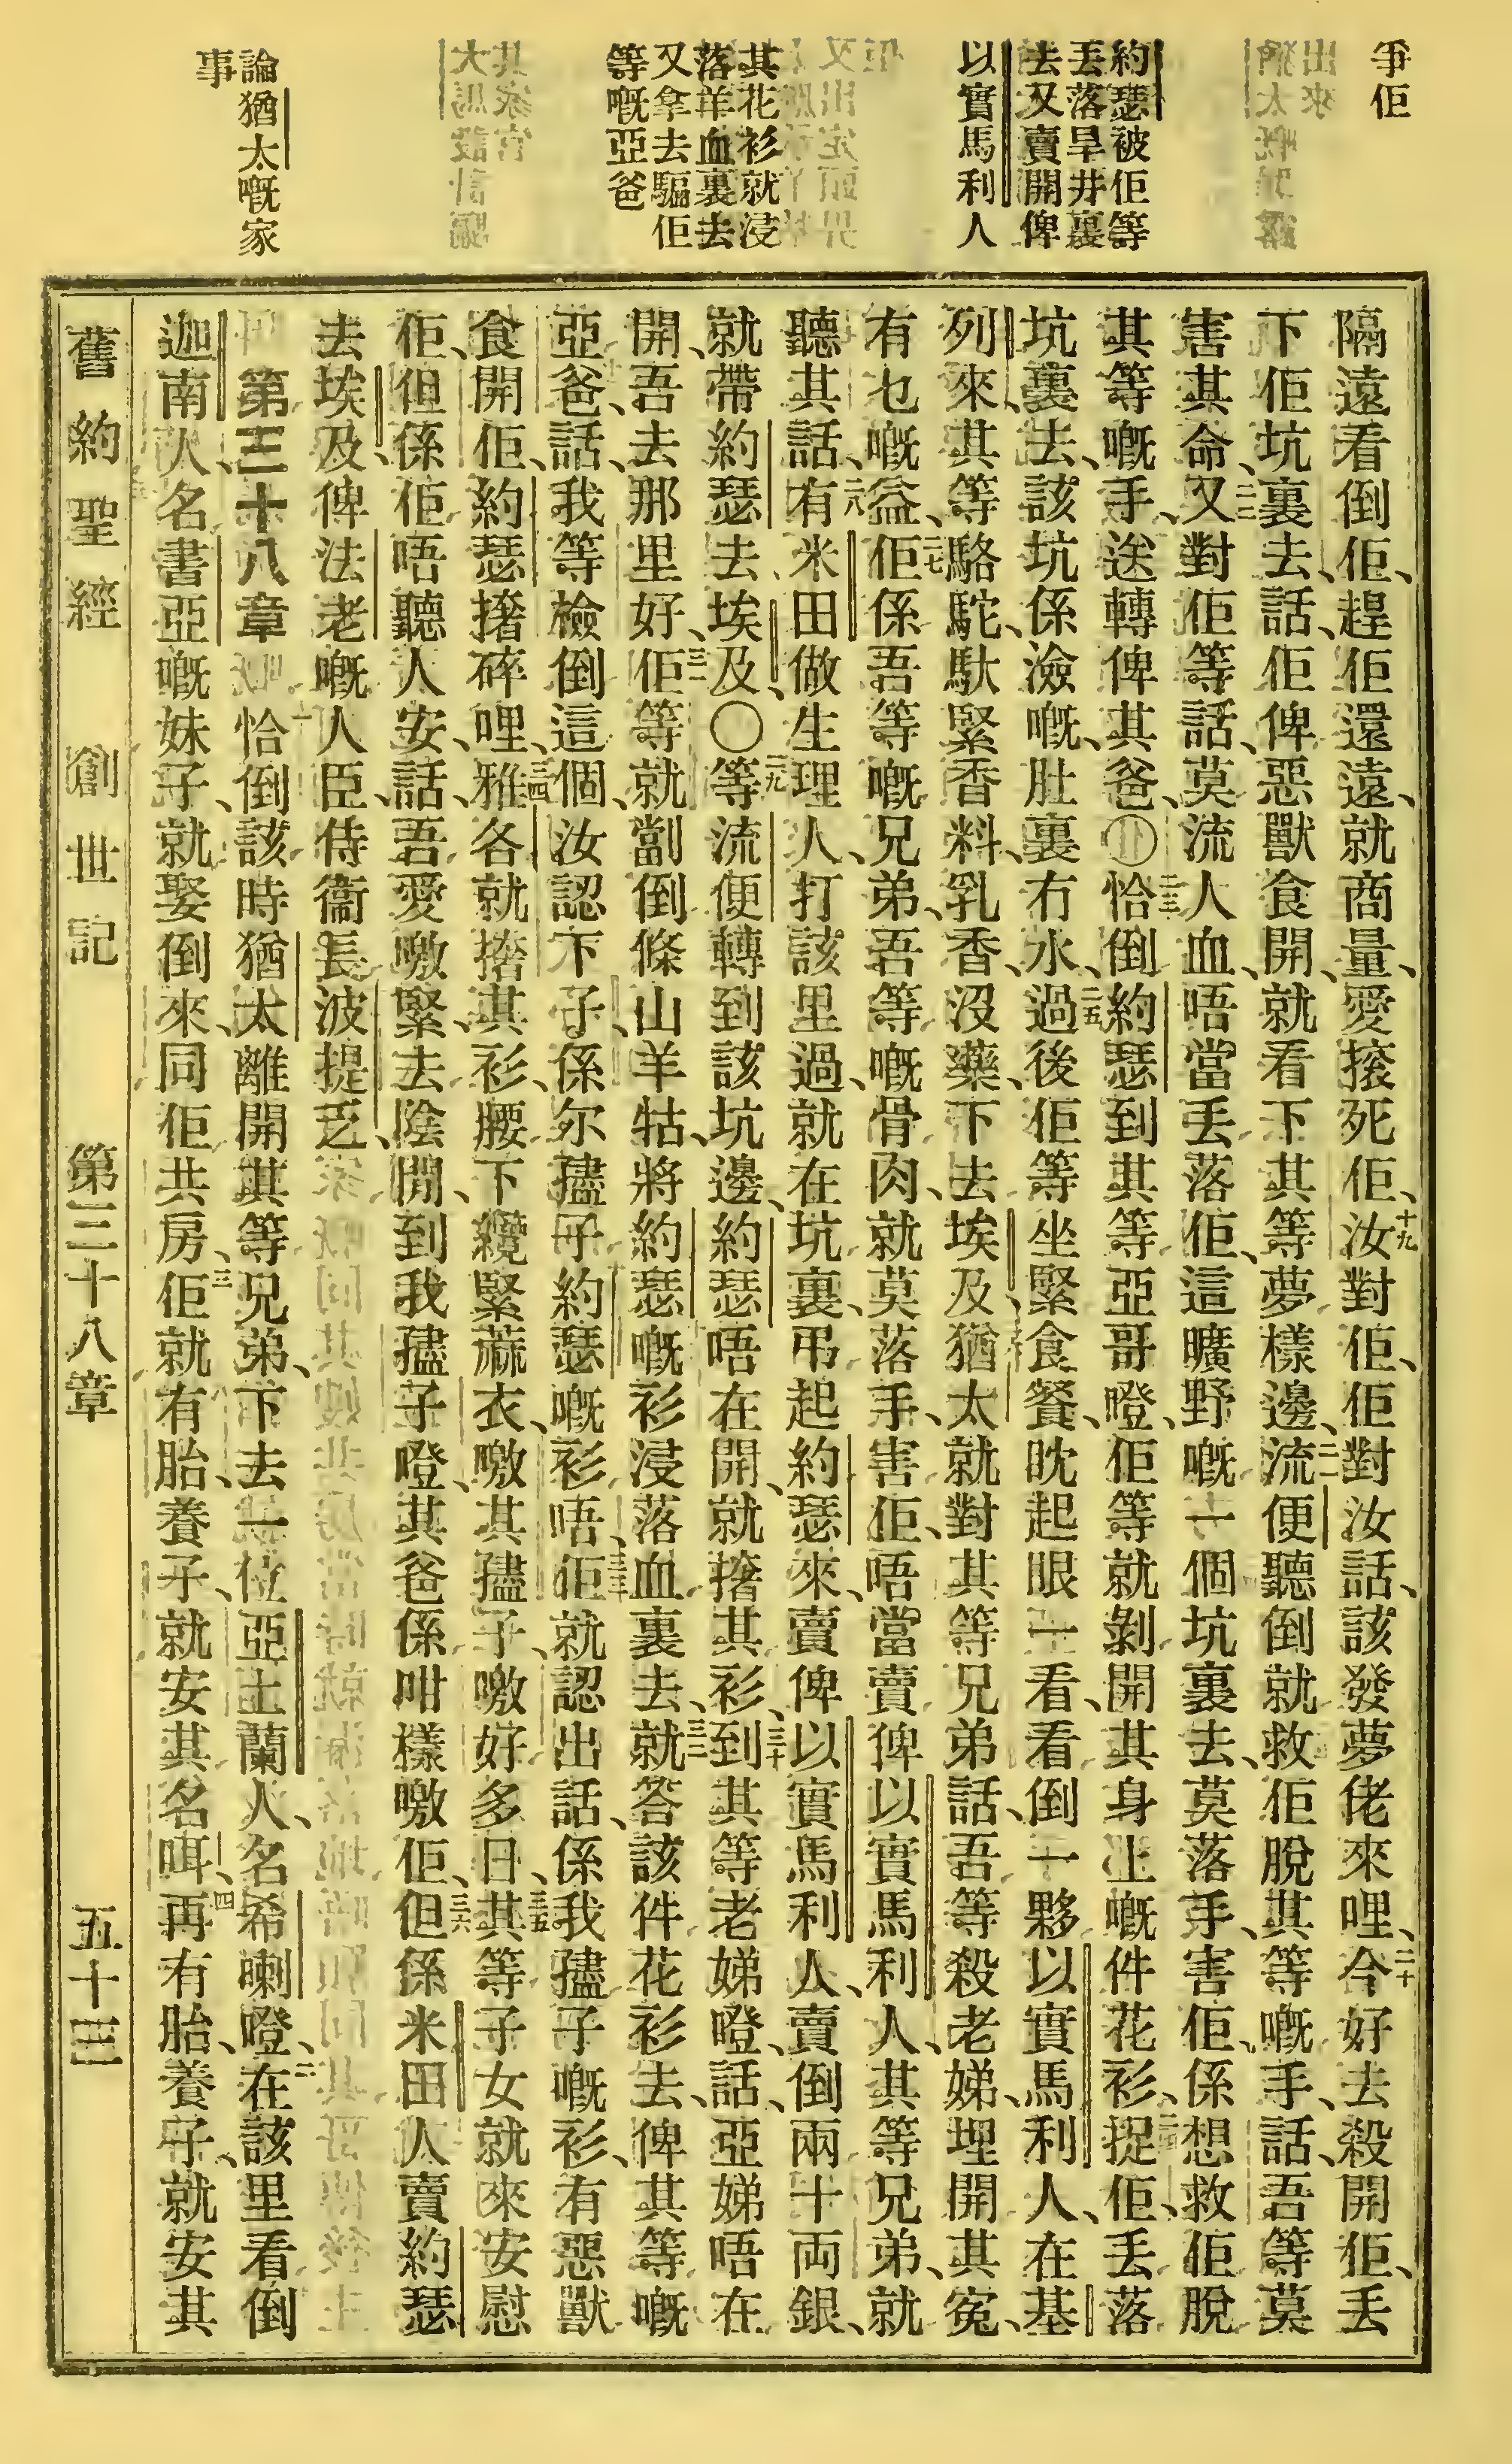 爭佢
約瑟被佢等
丟落旱井裏
去又賣開俾
以實馬利人
其花衫就浸
落羊血裏去
又拿去騙佢
等嘅亞爸
論猶太嘅家
事
隔遠看倒佢、趕佢還遠、就商量、愛𢱤死佢、十九汝對佢、佢對汝話、該發夢佬來哩、二十今好去殺開佢、丟
下佢坑裏去、話、佢俾惡獸食開、就看下其等夢樣邊、二一流便聽倒就救佢脫其等嘅手、話、吾等莫
害其命、二二又對佢等話、莫流人血、唔當丟落佢、這曠野嘅一個坑裏去、莫落手、害佢、係想救佢脫
其等嘅手、送轉俾其爸、二三恰倒約瑟到其等亞哥嶝、佢等就剝開其身上嘅件花衫、二四捉佢、丟落
坑裏去、該坑係澰嘅、肚裏冇水、二五過後佢等坐緊食餐、眈起眼一看、看倒一夥以實馬利人、在基
列來、其等駱駝、馱緊香料、乳香、沒藥、下去埃及、猶太就對其等兄弟話、吾等殺老娣、埋開其寃、
有乜嘅益、二七佢係吾等嘅兄弟、吾等嘅骨肉、就莫落手、害佢、唔當賣俾以實馬利人、其等兄弟、就
聽其話、二八有米田做生理人、打該里過、就在坑裏、吊起約瑟來、賣俾以實馬利人、賣倒兩十両銀、
就帶約瑟去、埃及、〇二九等流便轉到該坑邊、約瑟唔在開、就撦其衫、三十到其等老娣嶝、話、亞娣唔在
開、吾去那里好、三一佢等就劏倒條山羊牯、將約瑟嘅衫浸落血裏去、三二就荅該件花衫去、俾其等嘅
亞爸、話、我等檢倒這個、汝認下子、係尔𡥧子約瑟嘅衫唔、三三佢就認出話、係我𡥧子嘅衫、有惡獸
食開佢、約瑟撦碎哩、三四雅各就撦其衫、腰下纜緊蔴衣、噭其𡥧子、噭好多日、三五其等子女就來安慰
佢、但係佢唔聽人安、話、吾愛噭緊、去陰間、到我𡥧子嶝、其爸係咁樣噭佢、三六但係米田人賣約瑟
去埃及、俾法老嘅人臣、侍衞長、波提乏、
第三十八章 一恰倒該時猶太離開其等兄弟、下去一位亞土蘭人、名希喇嶝、二在該里看倒
迦南人、名書亞嘅妹子、就娶倒來、同佢共房、三佢就有胎、養子、就安其名咡、四再有胎、養子、就安其
舊約聖經 創世記 第三十八章 五十三